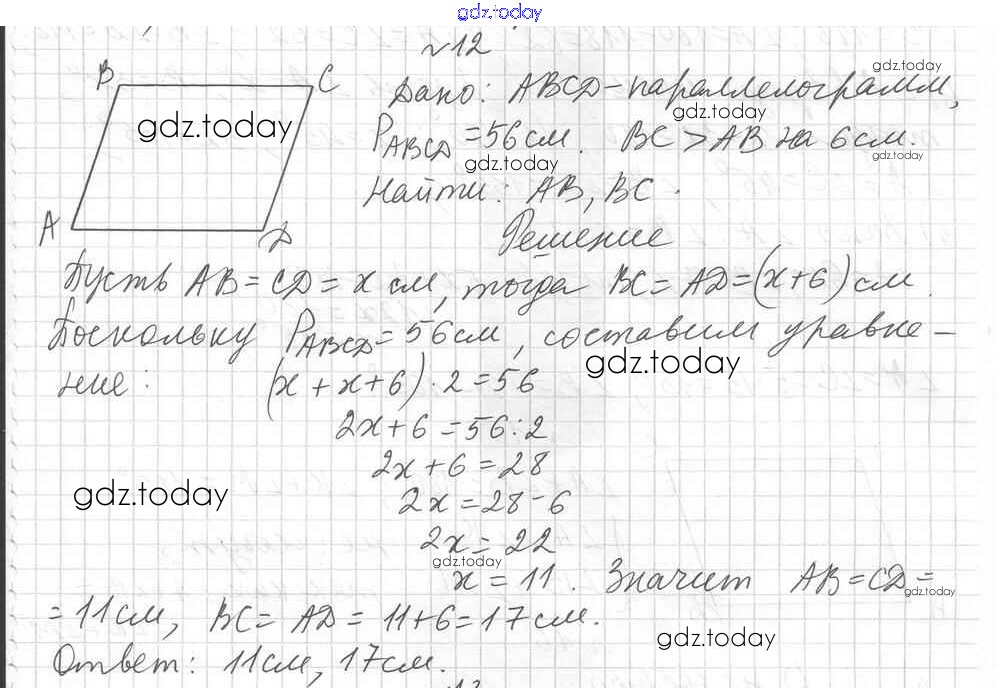 gdz.today
№12
B C
gdz.today
Дано: ABCD - параллелограмм,
gdz.today
gdz.today
P_ABCD = 56 см. BC > AB на 6 см.
gdz.today
gdz.today
Найти: AB, BC.
A D
Решение
Пусть AB = CD = x см, тогда BC = AD = (x+6) см.
Поскольку P_ABCD = 56 см, составим уравне-
gdz.today
ние: (x + x + 6) · 2 = 56
2x + 6 = 56 : 2
2x + 6 = 28
gdz.today
2x = 28 - 6
2x = 22
gdz.today
x = 11. Значит AB = CD =
gdz.today
= 11 см, BC = AD = 11 + 6 = 17 см.
gdz.today
Ответ: 11 см, 17 см.